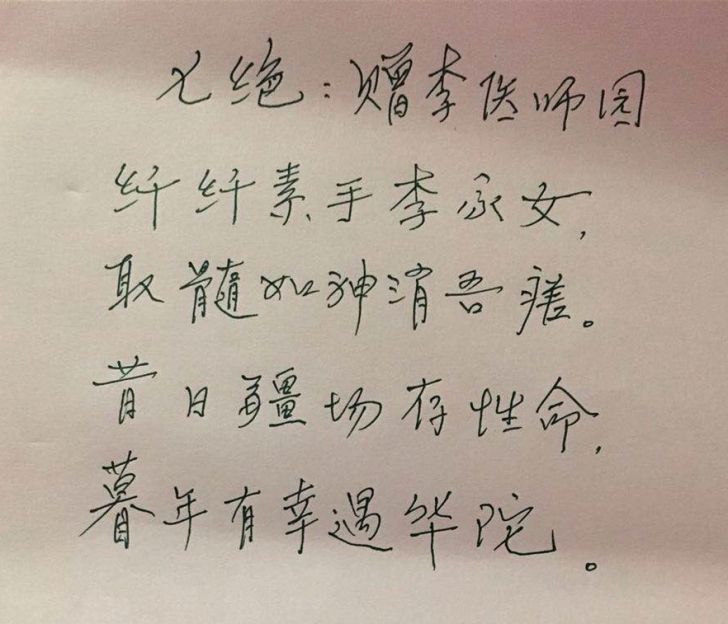 七绝:赠李医师园
纤纤素手李家女,
取髓如神消吾瘥。
昔日疆场存性命,
暮年有幸遇华陀。